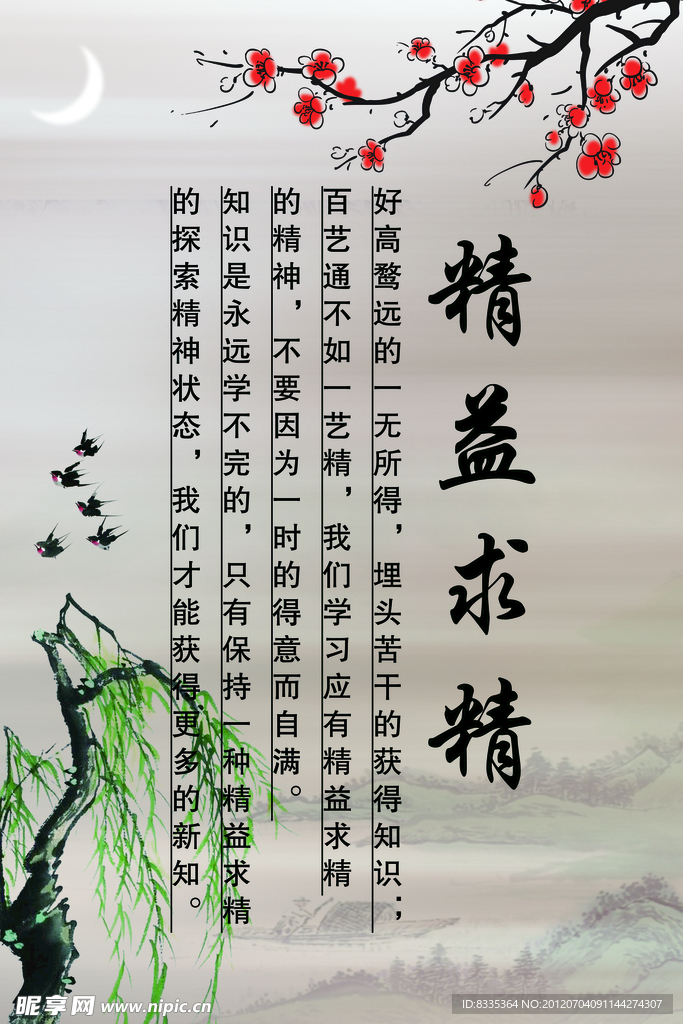 精益求精
好高鹜远的一无所得，埋头苦干的获得知识；
百艺通不如一艺精，我们学习应有精益求精
的精神，不要因为一时的得意而自满。
知识是永远学不完的，只有保持一种精益求精
的探索精神状态，我们才能获得更多的新知。
昵享网 www.nipic.cn
ID:8335364 NO:20120704091144274307